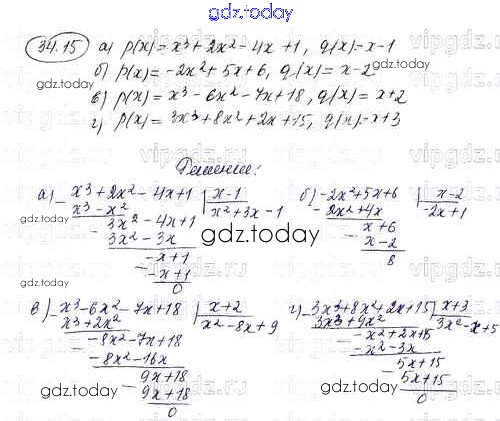 gdz.today
34.15 а) p(x)=x³+2x²-4x+1, q(x)=x-1
б) p(x)=-2x²+5x+6, q(x)=x-2
в) p(x)=x³-6x²-7x+18, q(x)=x+2
г) p(x)=3x³+8x²+2x+15, q(x)=x+3
gdz.today
Решение:
а) x³+2x²-4x+1 | x-1
x³-x² | x²+3x-1
3x²-4x+1
3x²-3x
-x+1
-x+1
0
б) -2x²+5x+6 | x-2
-2x²+4x | -2x+1
x+6
x-2
8
gdz.today
в) x³-6x²-7x+18 | x+2
x³+2x² | x²-8x+9
-8x²-7x+18
-8x²-16x
9x+18
9x+18
0
г) 3x³+8x²+2x+15 | x+3
3x³+9x² | 3x²-x+5
-x²+2x+15
-x²-3x
5x+15
5x+15
0
gdz.today
gdz.today